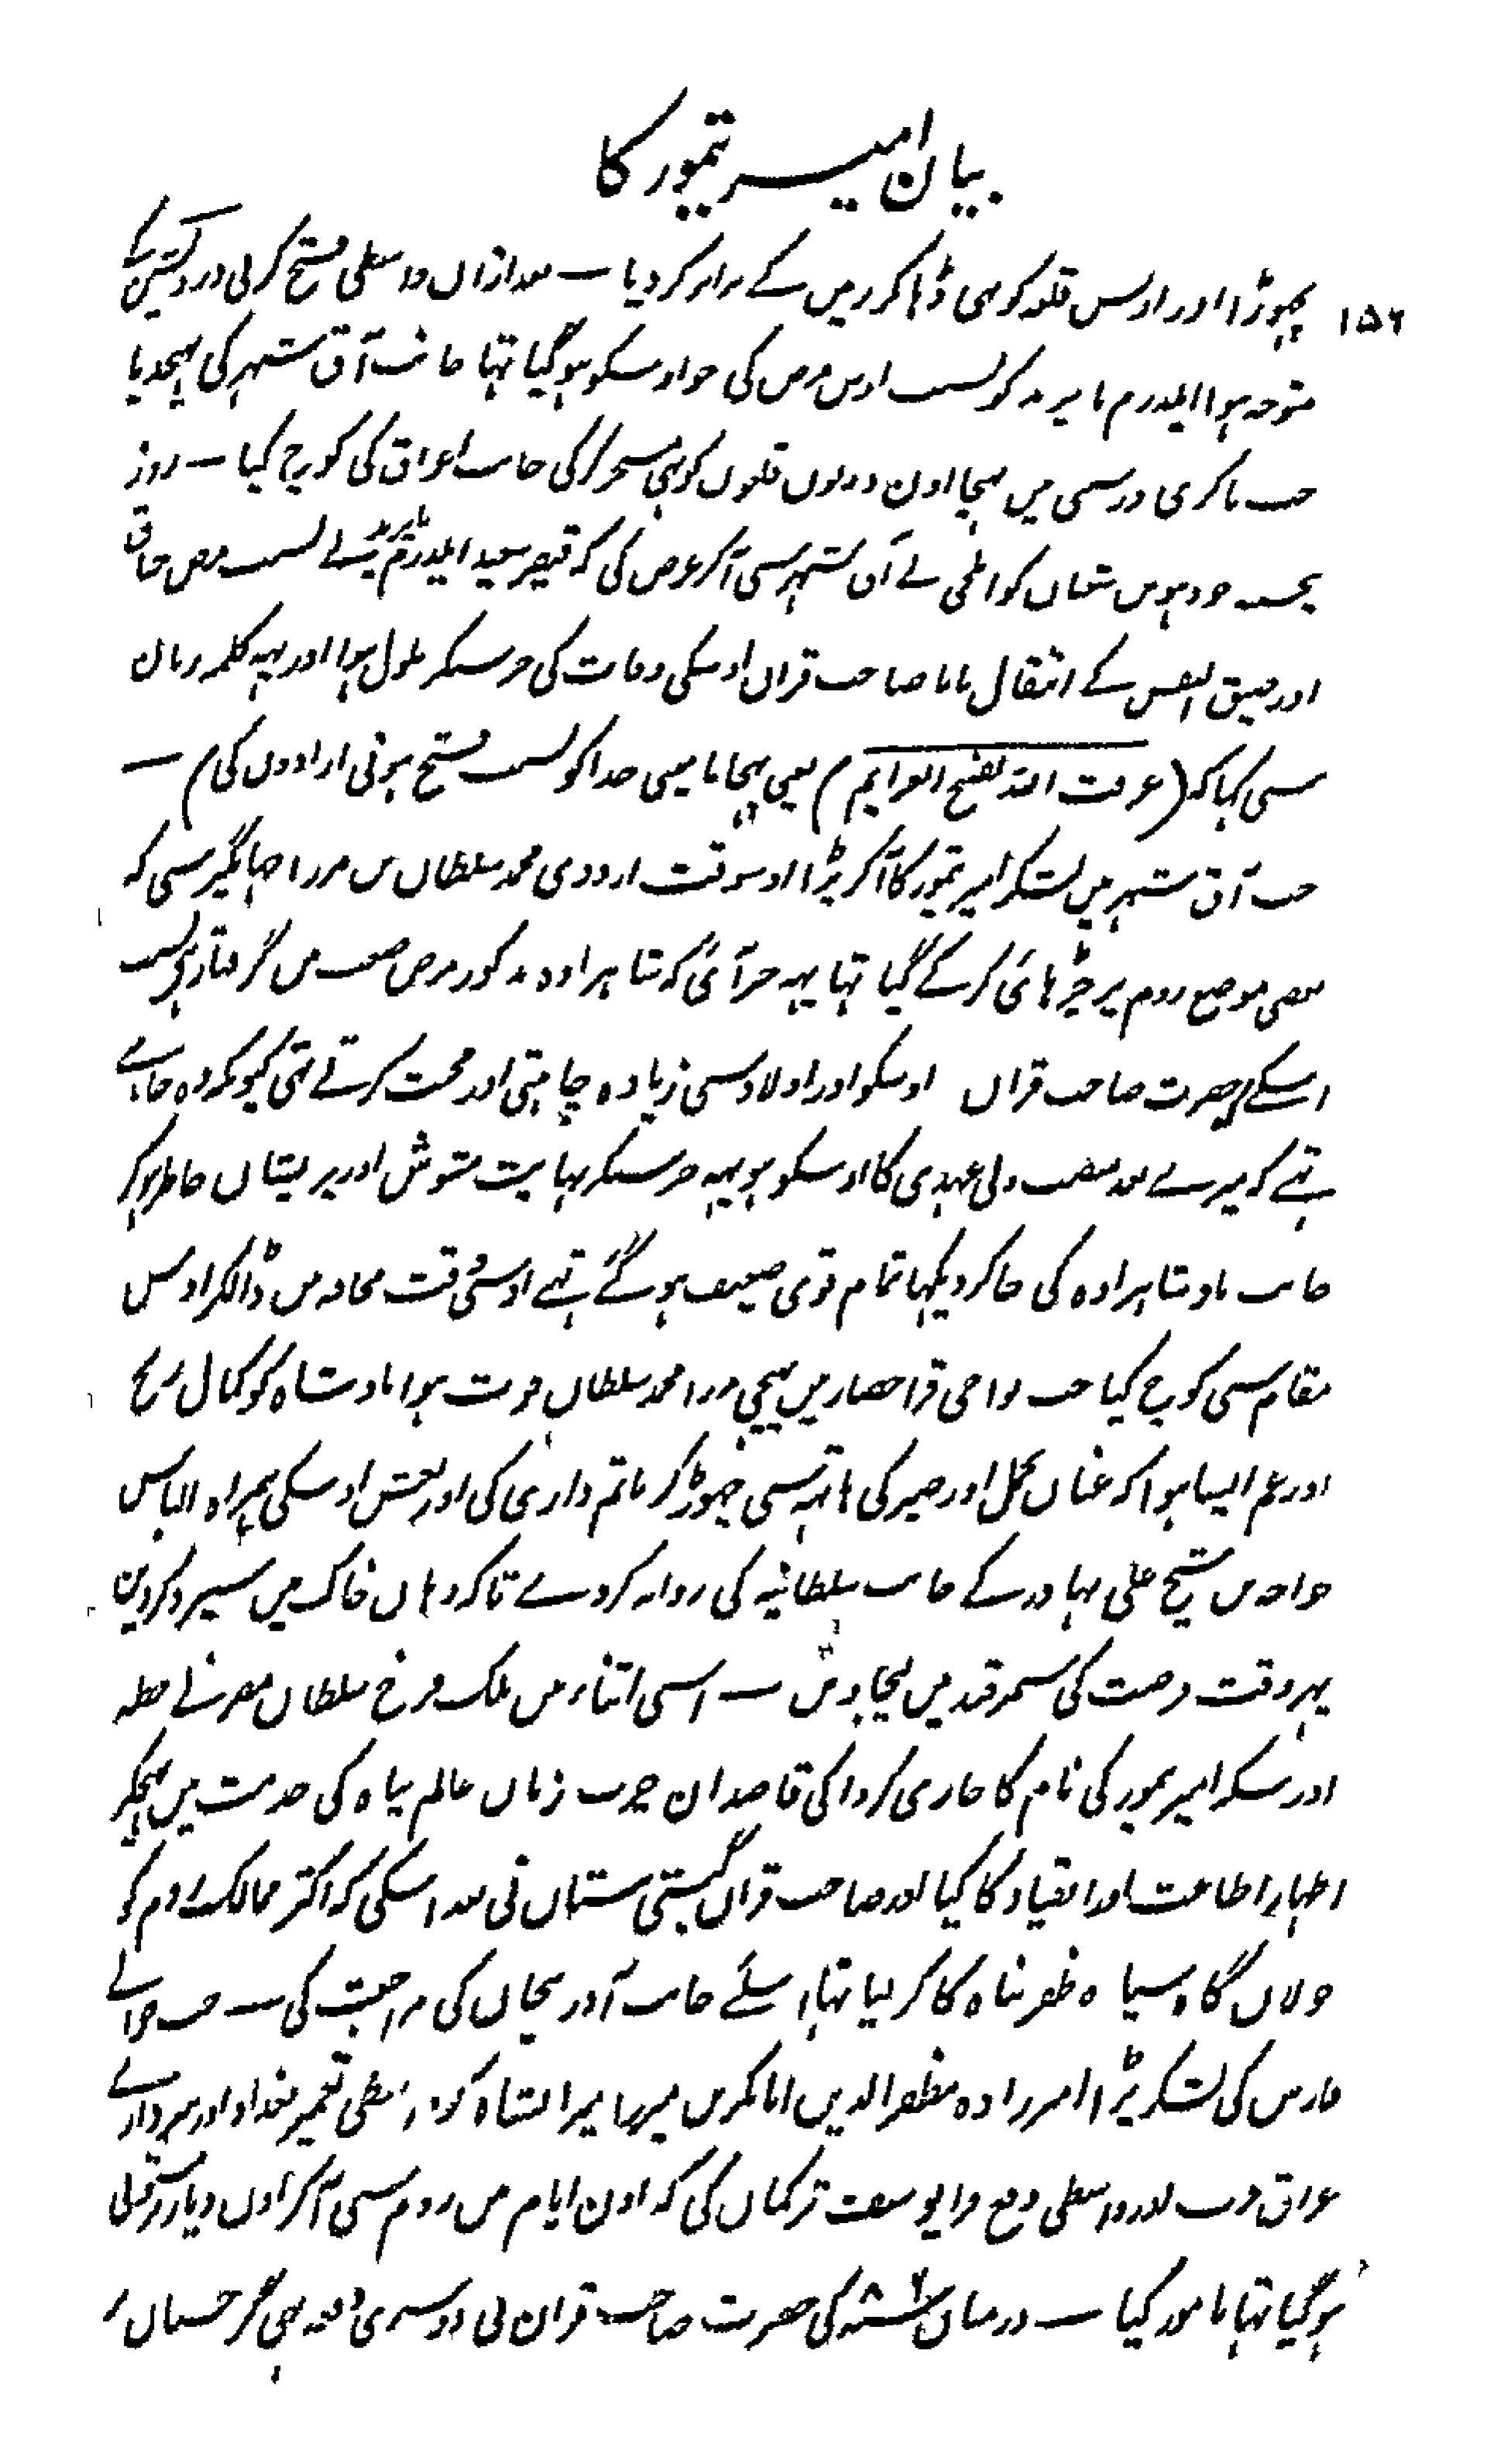 بیان امیر تیمور کا
۱۵۶ چھوڑا اور اوس قلعہ کو بھی ڈہا کر زمین کے برابر کر دیا — بعد ازاں واسطی فتح کرنی
متوجہ ہوا ایلدرم بایزید کو بسبب اوس مرض کی جو اوسکو ہو گیا تہا جانب آق شہر کی بہیجدیا
جب میں پہنچا اون دونوں قلعوں کو بہی مسخر کر کی جانب کی کوچ کیا — روز
پنجشنبہ چودہویں شعبان کو ایلچی نے آق شہر سی آ کر عرض کی کہ قیصر سعید ایلدرم بایزید نے بسبب مرض خناق
اور ضیق النفس کے انتقال پایا صاحب قراں اوسکی وفات کی خبر سنکر ملول ہوا اور یہہ کلمہ زبان
سی کہا کہ (عرفت اللہ بفسخ العزایم) یعنی پہچانا مینی خدا کو بسبب فسخ ہونی ارادوں کی) —
جب آق شہر میں لشکر امیر تیمور کا آ کر پڑا اوسوقت اردوی محمد سلطان بن مرزا جہانگیر سی کہ
بعضی موضع روم پر چڑہائی کر کے گیا تہا یہہ خبر آئی کہ شاہزادہ مذکور مرض صعب میں گرفتار ہی بسبب
اسکے کہ حضرت صاحب قراں اوسکو اور اولاد سی زیادہ چاہتی اور محبت کرتے تہی کیونکہ وہ جانتے
تہے کہ میرے بعد منصب ولی عہدی کا اوسکو ہو یہہ خبر سنکر نہایت مشوش اور پریشاں خاطر ہو کر
جانب شاہزادہ کی جا کر دیکہا تمام قوی ضعیف ہو گئے تہے اوسی وقت محافہ میں ڈالکر اوس
مقام سی کوچ کیا جب نواحی قراحصار میں پہنچی مرزا محمد سلطان فوت ہوا بادشاہ کو کمال رنج
اور غم ایسا ہوا کہ عنان تحمل اور صبر کی ہاتہہ سی چہوڑ کر ماتم داری کی اور نعش اوسکی ہمراہ الیاس
خواجہ بن شیخ علی بہادر کے جانب سلطانیہ کی روانہ کر دے تا کہ وہاں خاک میں سپرد کر دین
پہر وقت فرصت کی سمرقند میں لیجاویں — اسی اثناء میں ملک فرخ سلطان مصر نے خطبہ
اور سکہ امیر تیمور کی نام کا جاری کروا کی قاصدان چرب زباں عالم پناہ کی خدمت میں بہیجکر
اظہار اطاعت اور انقیاد کا کیا اور صاحب قراں گیتی ستاں نی بعد اسکی کہ اکثر ممالک روم کو
جولاں گاہ سپاہ ظفر پناہ کا کر لیا تہا اسلئے جانب آذربیجاں کی مراجعت کی — جب حوالے
فارس کی لشکر پڑا امیرزادہ مظفرالدین ابابکر بن میرزا میرانشاہ کو واسطی تعمیر بغداد اور سرداری
عراق عرب اور واسطی دفع قرایوسف ترکماں کی کہ اون ایام میں روم سی آ کر اول دیار
ہو گیا تہا مامور کیا — درمیاں کی حضرت صاحب قران نی دوسری دفعہ بہی گرجستاں